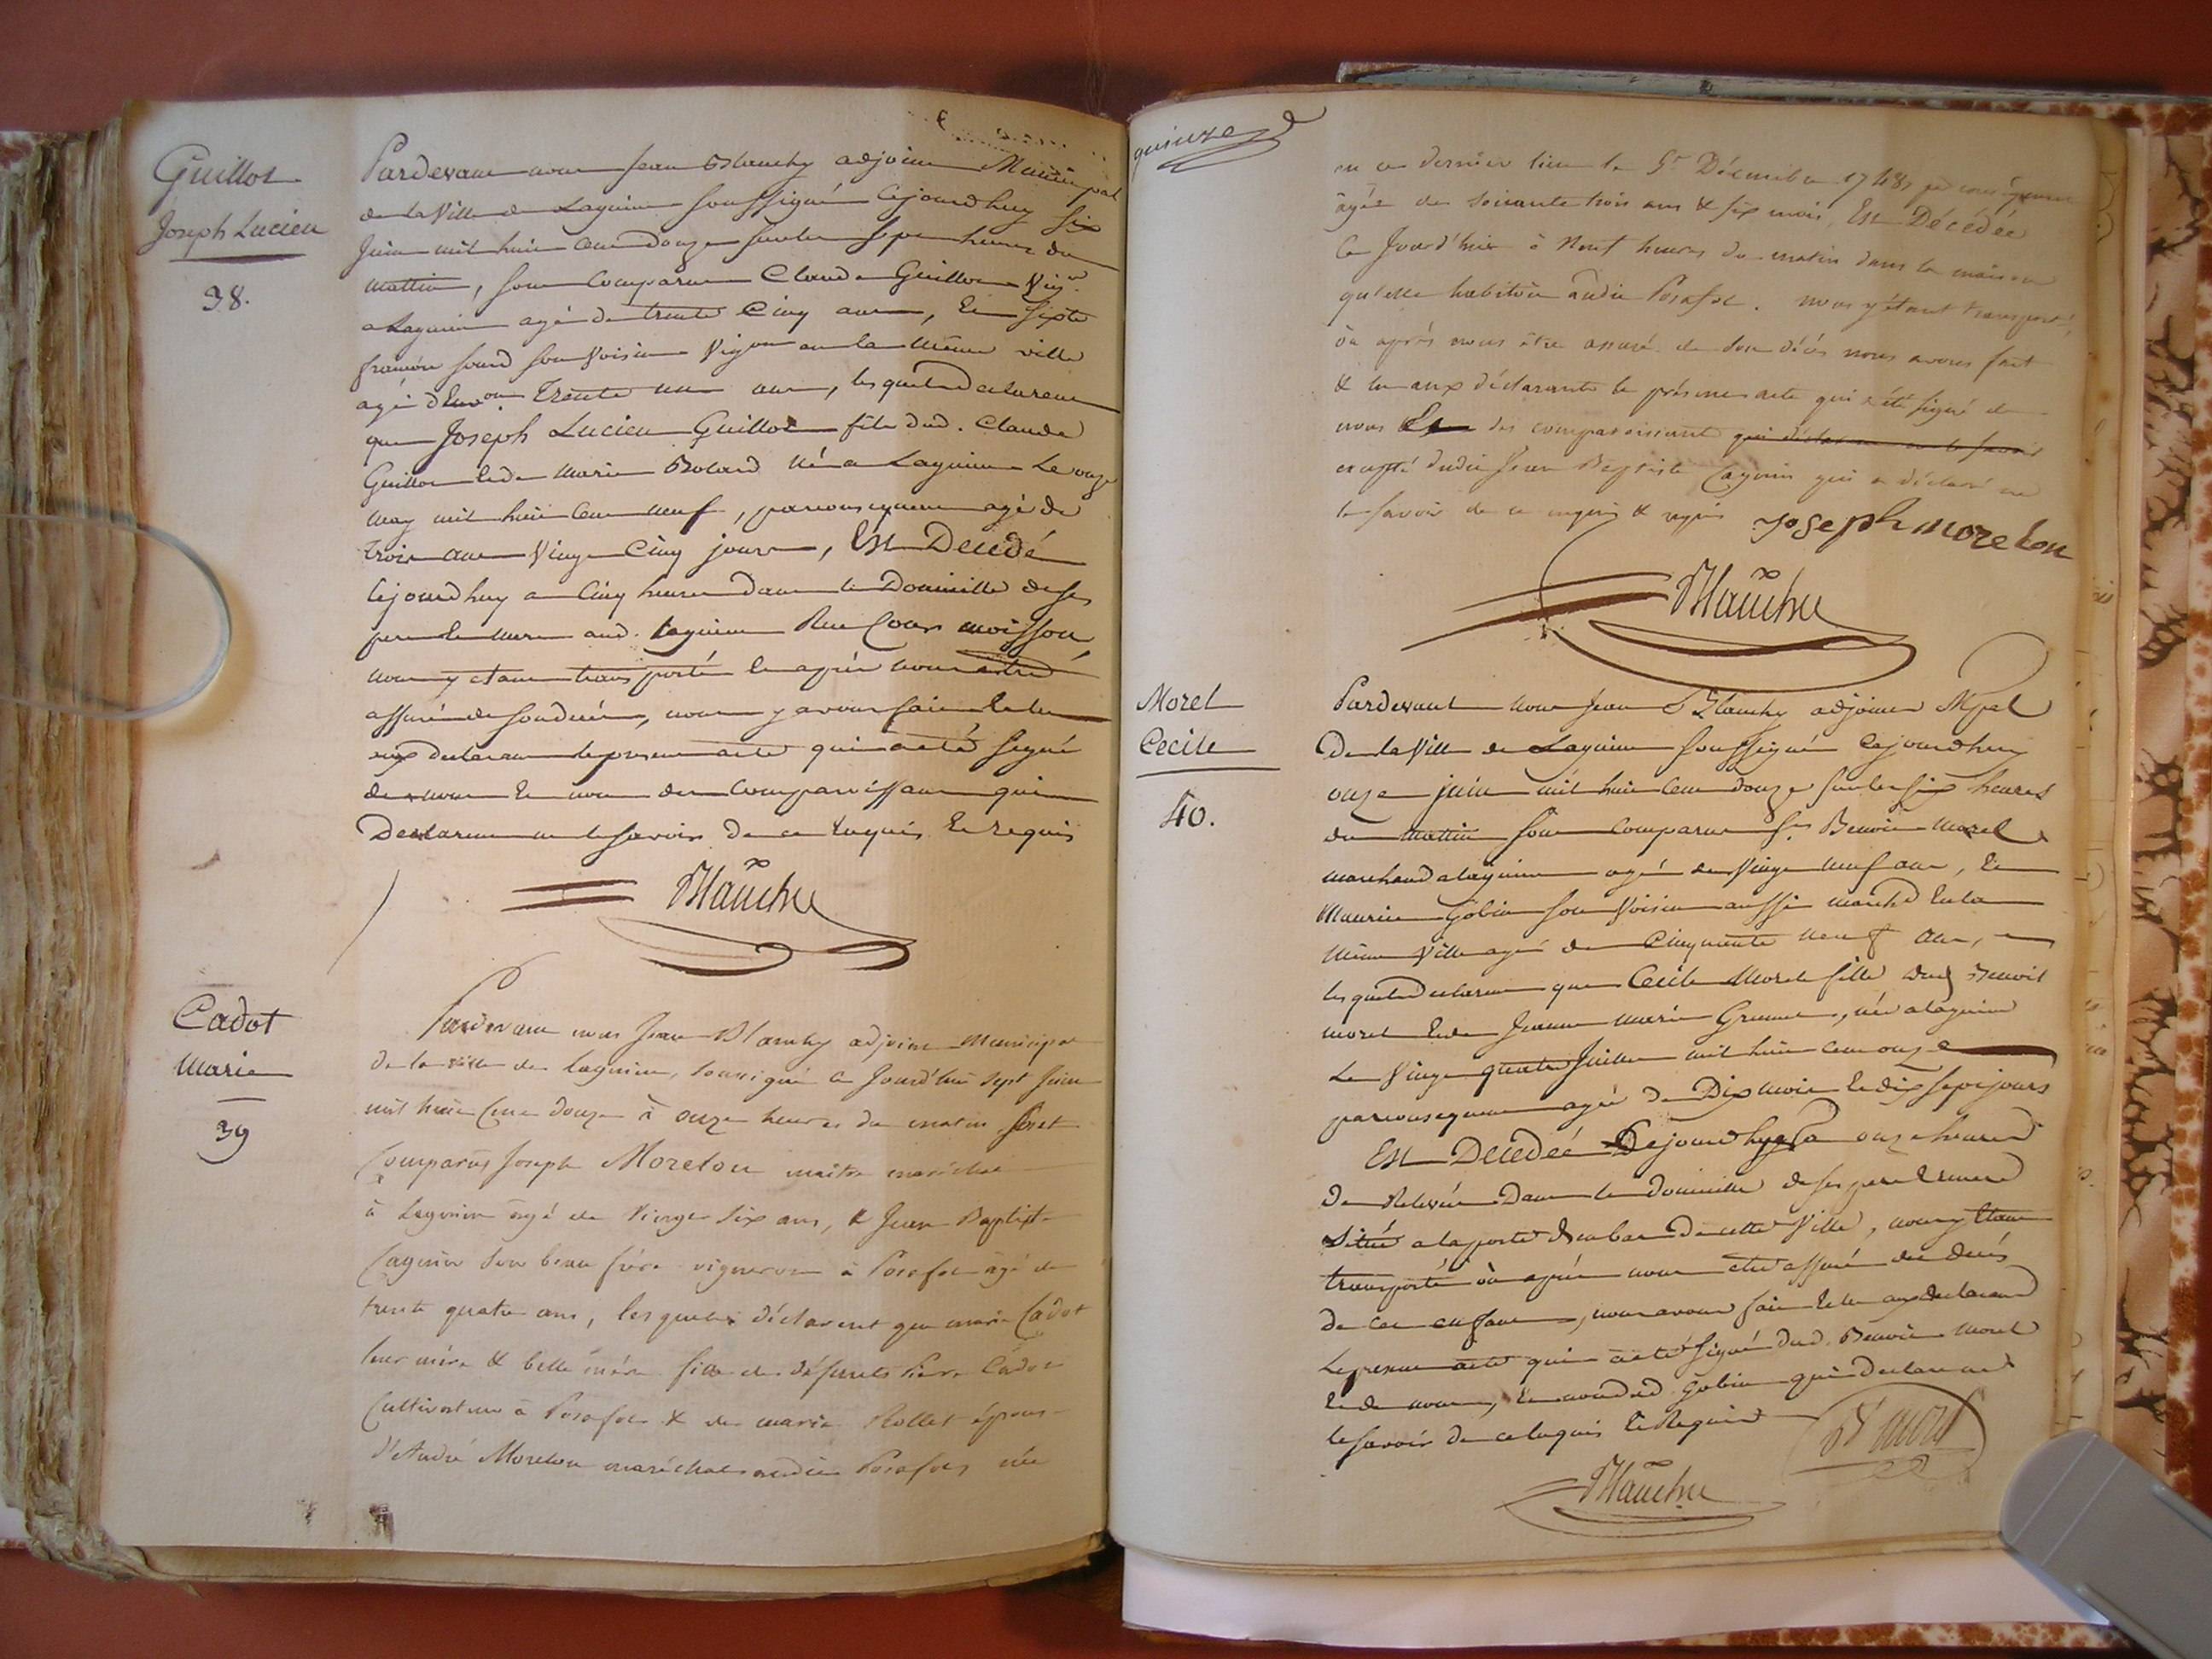 Guillot
Joseph Lucien
38.
Pardevant nous Jean Blanchy adjoint Municipal
de la Ville de Lagnieu soussigné Cejourdhuy six
Juin mil huit Cent douze sur les sept heures du
mattin, sont Comparus Claude Guillot Vig.on
a Lagnieu agé de trente Cinq ans, Et
son Voisin Vig.on en la même ville
agé d'Env.on Trente un ans, lesquels declarent
que Joseph Lucien Guillot fils dud. Claude
Guillot Et de Marie Bolard Né a Lagnieu Le onze
may mil huit Cent neuf, par consequent agé de
trois ans Vingt Cinq jours, Est Decedé
Cejourdhuy a Cinq heures dans le Domicille de ses
pere Et mere aud. Lagnieu Rue Cour moisson,
nous y etant transporté Et après nous etre
assuré de son decés, nous y avons fait Et lu
aux declarans le present acte qui a eté signé
de nous Et non des Comparoissans qui
Declarent ne le savoir De ce Enquis Et Requis
Blanchy
Cadot
Marie
39
Pardevant nous Jean Blanchy adjoint municipal
de la ville de Lagnieu, soussigné ce Jourd'hui sept Juin
mil huit Cent Douze à onze heures du matin sont
Comparus Joseph Moreton maitre maréchal
à Lagnieu âgé de Vingt Six ans, & Jean Baptiste
Cagnin son beau frère vigneron à Posafol âgé de
trente quatre ans, lesquels déclarent que marie Cadot
leur mère & belle mère fille de défunts Pierre Cadot
Cultivateur à Posafol & de marie Rollet épouse
d'André Moreton maréchal audit Posafol née
quinze
en ce dernier lieu le 5.e Décembre 1748, par conséquent
âgée de soixante trois ans & six mois, Est Décédée
Ce Jourd'hui à Neuf heures du matin dans la maison
qu'elle habitoit audit Posafol. nous y étant transporté,
où après nous être assuré de son décès nous avons fait
& lu aux déclarants le présent acte qui a été signé de
nous Et des comparoissants qui déclarent ne le savoir
excepté dudit Jean Baptiste Cagnin qui a déclaré ne
le savoir de ce enquis & requis Joseph moreton
Blanchy
Morel
Cecile
40.
Pardevant nous Jean Blanchy adjoint Mpal
De la Ville de Lagnieu soussigné Cejourdhuy
onze juin mil huit Cent douze sur les six heures
du mattin sont Comparus Sr. Benoit Morel
marchand a Lagnieu agé de Vingt neuf ans, Et
Maurice Gobin son Voisin aussi marchd En la
même Ville agé de Cinquante neuf ans,
lesquels declarent que Cecile Morel fille dud Benoit
morel Et de Jeanne Marie, née a Lagnieu
Le Vingt quatre Juillet mil huit Cent onze
par consequent agée de Dix mois Et dix sept jours
Est Decedée Cejourdhuy a onze heures
De Relevée Dans le domicille de ses pere Et mere
Situé a la porte d'En bas De cette Ville, nous y Etant
transporté où après nous etre assuré du decés
de cet enfant, nous avons fait Et lu aux declarans
Le present acte qui a eté signé dud. Benoit Morel
Et de nous, Et non dud Gobin qui a Declaré ne
le savoir De ce Enquis Et Requis
Bt morel
Blanchy